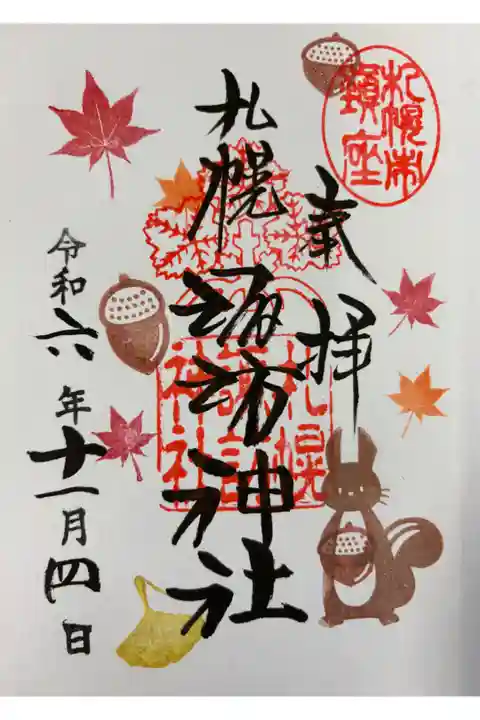 札幌市
鎮座
奉拝
札幌諏訪神社
札幌
諏訪
神社
令和六年十一月四日